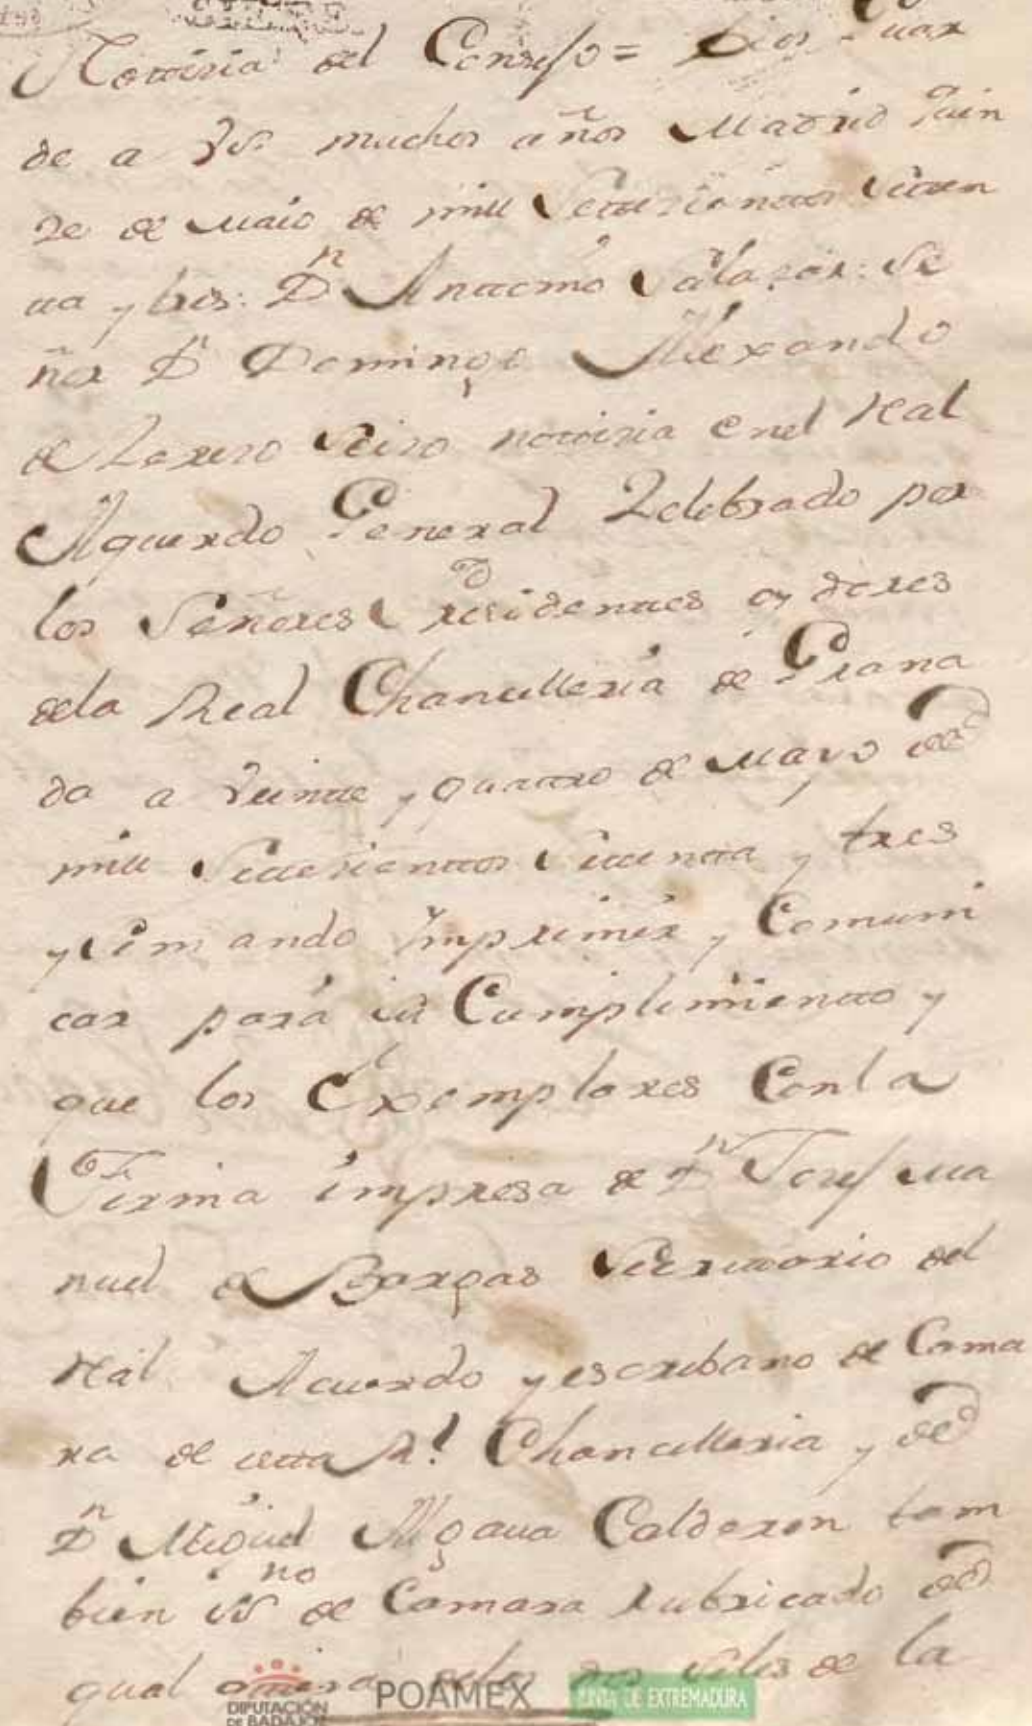 Noticia del Consejo = Dios Guar
de a VS muchos años Madrid Quin
ze de Maio de mill Setezientos Seten
ta y tres: Dn Antonio Salazar: Se
ñor Dn Domingo Alexandro
de Zerezo Vióse notizia enel Real
Aquerdo General Zelebrado por
los Señores Presidentes oydores
dela Real Chancilleria de Grana
da a Veinte y quatro de Mayo de
mill Setezientos Setenta y tres
y se mando Imprimir y Comuni
car para su Cumplimiento y
que los Exemplares Conla
Firma impresa de Dn Josef Ma
nuel de Bargas Secretario del
Real Acuerdo y escribano de Cama
ra de esta Rl Chancilleria y de
Dn Miguel Algaua Calderon tam
bien ssno de Camara rubricado de
qual quiera delos dos Selos de la
DIPUTACIÓN
DE BADAJOZ
POAMEX
JUNTA DE EXTREMADURA